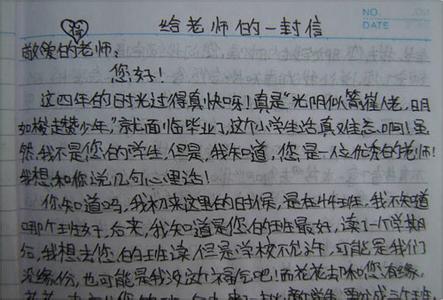 给老师的一封信
NO.
DATE
敬爱的老师:
您好!
这四年的时光过得真快呀!真是“光阴似箭催人老,日月
如梭趱少年,”就面临毕业了,这个小学生活真难忘啊!虽
然,我不是您的学生,但是,我知道,您是一位优秀的老师!
我想和你说几句心里话!
你知道吗,我初来这里的时候,是在4年班,我不知道
哪个班好,后来,我知道是您的班最好,读了一个学期
后,我想去您的班读,但是学校不允许,可能是我们
没缘份,也可能是我没这个福气吧!而花花去和您有缘,